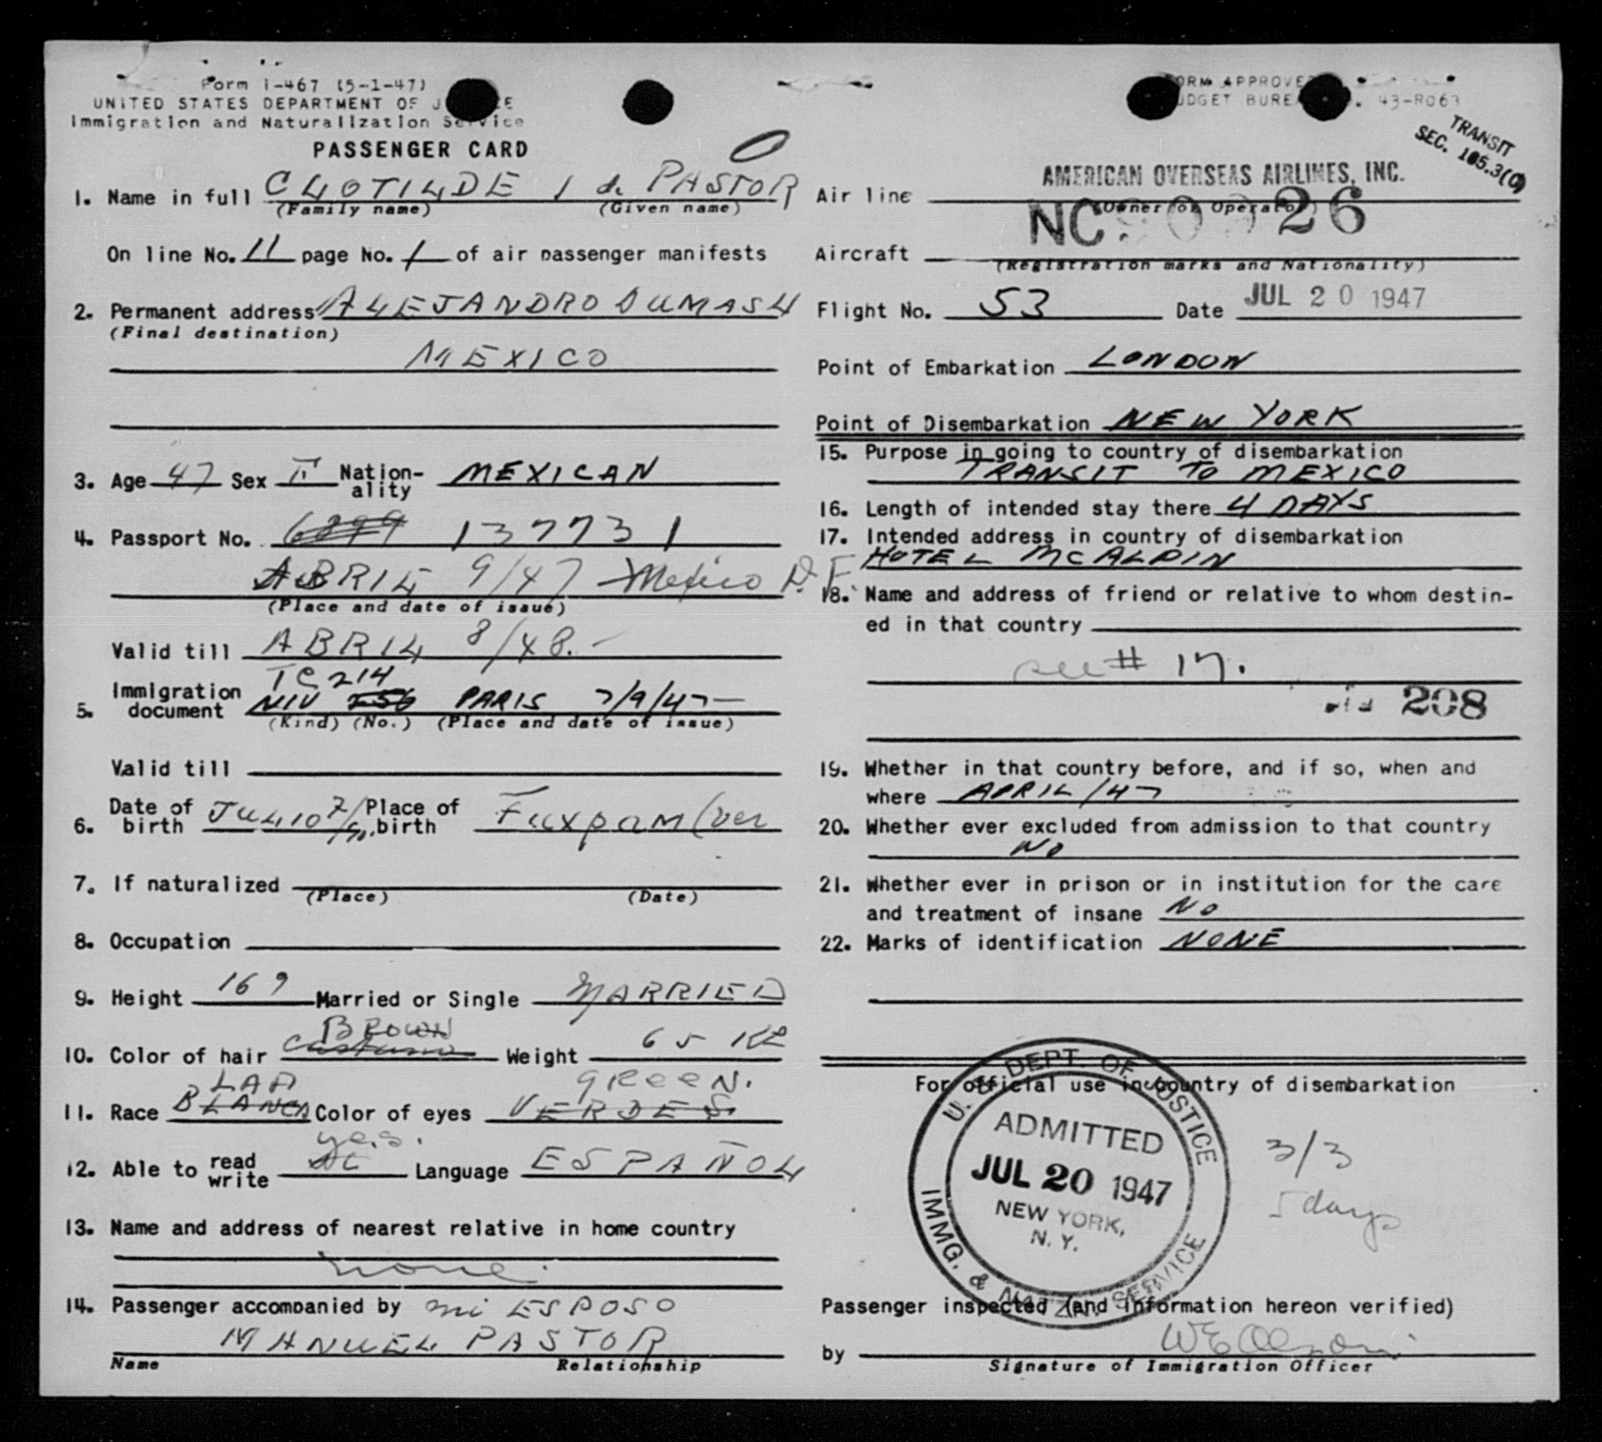 Form I-467 (5-1-47)
UNITED STATES DEPARTMENT OF
Immigration and Naturalization Service
PASSENGER CARD
1. Name in full CLOTILDE I de PASTOR
(Family name) (Given name)
On line No. 11 page No. 1 of air passenger manifests
2. Permanent address ALEJANDRO DUMAS 4
(Final destination)
MEXICO
3. Age 47 Sex F Nation-ality MEXICAN
4. Passport No. 6299 137731
ABRIL 9/47 Mexico D.F.
(Place and date of issue)
Valid till ABRIL 8/48.-
TC 214
5. Immigration document NIV 256 PARIS 7/9/47-
(Kind) (No.) (Place and date of issue)
Valid till
6. Date of birth JULIO 7/ Place of birth Tuxpam (ver
7. If naturalized
(Place) (Date)
8. Occupation
9. Height 169 Married or Single MARRIED
BROWN
10. Color of hair Weight 65 KL
LAA GREEN.
11. Race BLANCA Color of eyes VERDES.
yes.
12. Able to read write Language ESPAÑOL
13. Name and address of nearest relative in home country
none
14. Passenger accompanied by mi ESPOSO
MANUEL PASTOR
Name Relationship
FORM APPROVED
BUDGET BUREAU 43-R063
TRANSIT
SEC. 105.3(C)
AMERICAN OVERSEAS AIRLINES, INC.
Air line
(Owner or Operator)
Aircraft NC 26
(Registration marks and Nationality)
Flight No. 53 Date JUL 20 1947
Point of Embarkation LONDON
Point of Disembarkation NEW YORK
15. Purpose in going to country of disembarkation
TRANSIT TO MEXICO
16. Length of intended stay there 4 DAYS
17. Intended address in country of disembarkation
HOTEL MCALPIN
18. Name and address of friend or relative to whom destin-
ed in that country
see # 17.
208
19. Whether in that country before, and if so, when and
where APRIL/47
20. Whether ever excluded from admission to that country
NO
21. Whether ever in prison or in institution for the care
and treatment of insane NO
22. Marks of identification NONE
For official use in country of disembarkation
U. S. DEPT. OF JUSTICE
ADMITTED
JUL 20 1947
NEW YORK,
N. Y.
IMMG. & NATZ. SERVICE
3/3
5 days
Passenger inspected (and information hereon verified)
by
Signature of Immigration Officer